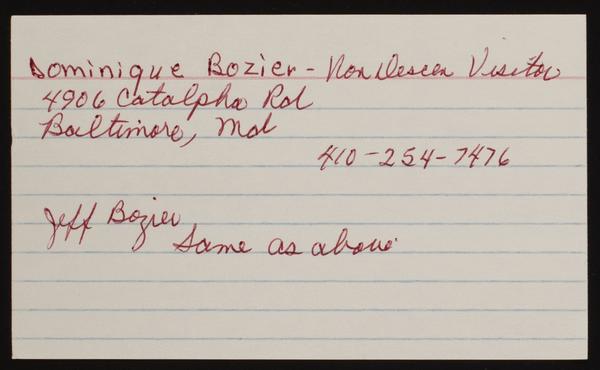 Dominique Bozier - Non Descen Visitor
4906 Catalpha Rd
Baltimore, Md
410-254-7476
Jeff Bozier
Same as above